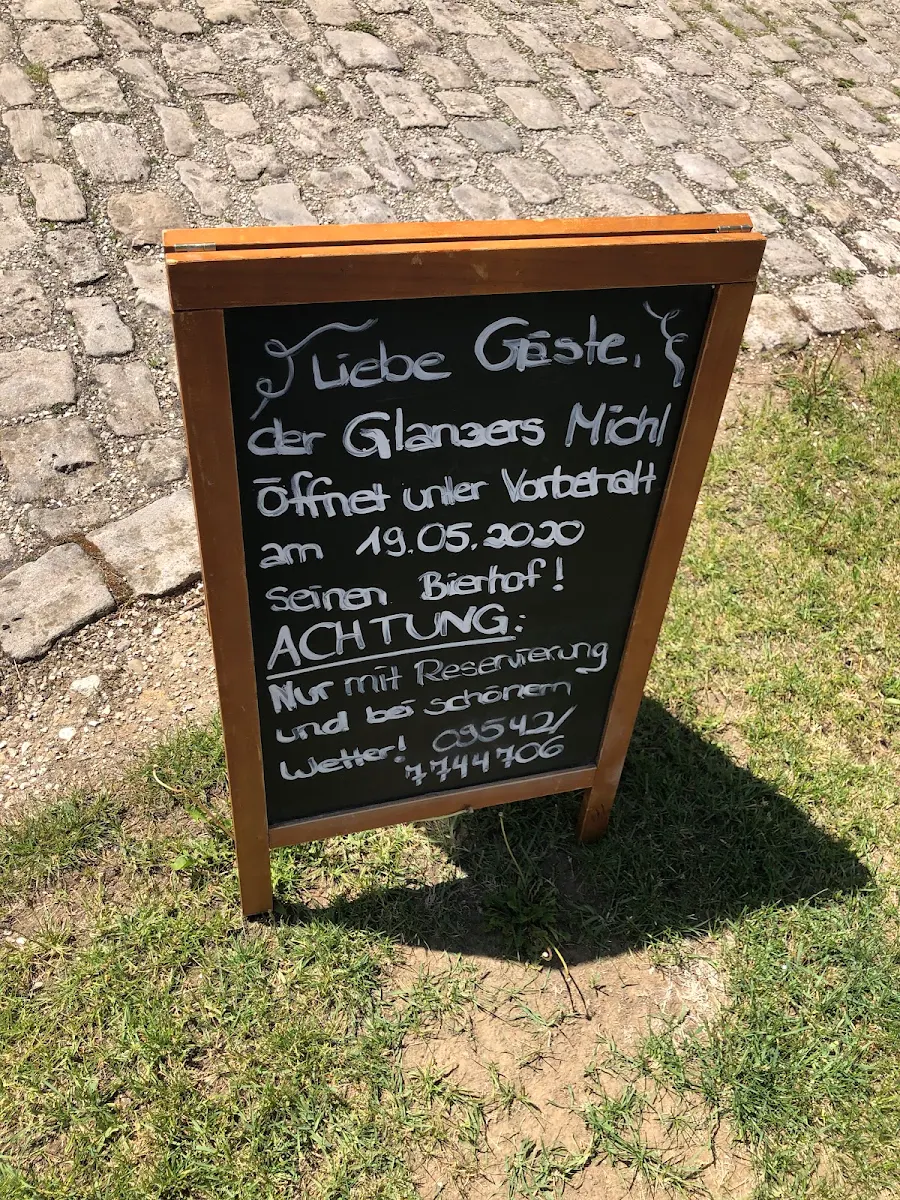 Liebe Gäste,
der Glanzers Michl
Öffnet unter Vorbehalt
am 19.05.2020
seinen Bierhof!
ACHTUNG:
Nur mit Reservierung
und bei schönem
Wetter! 09542/
7744706